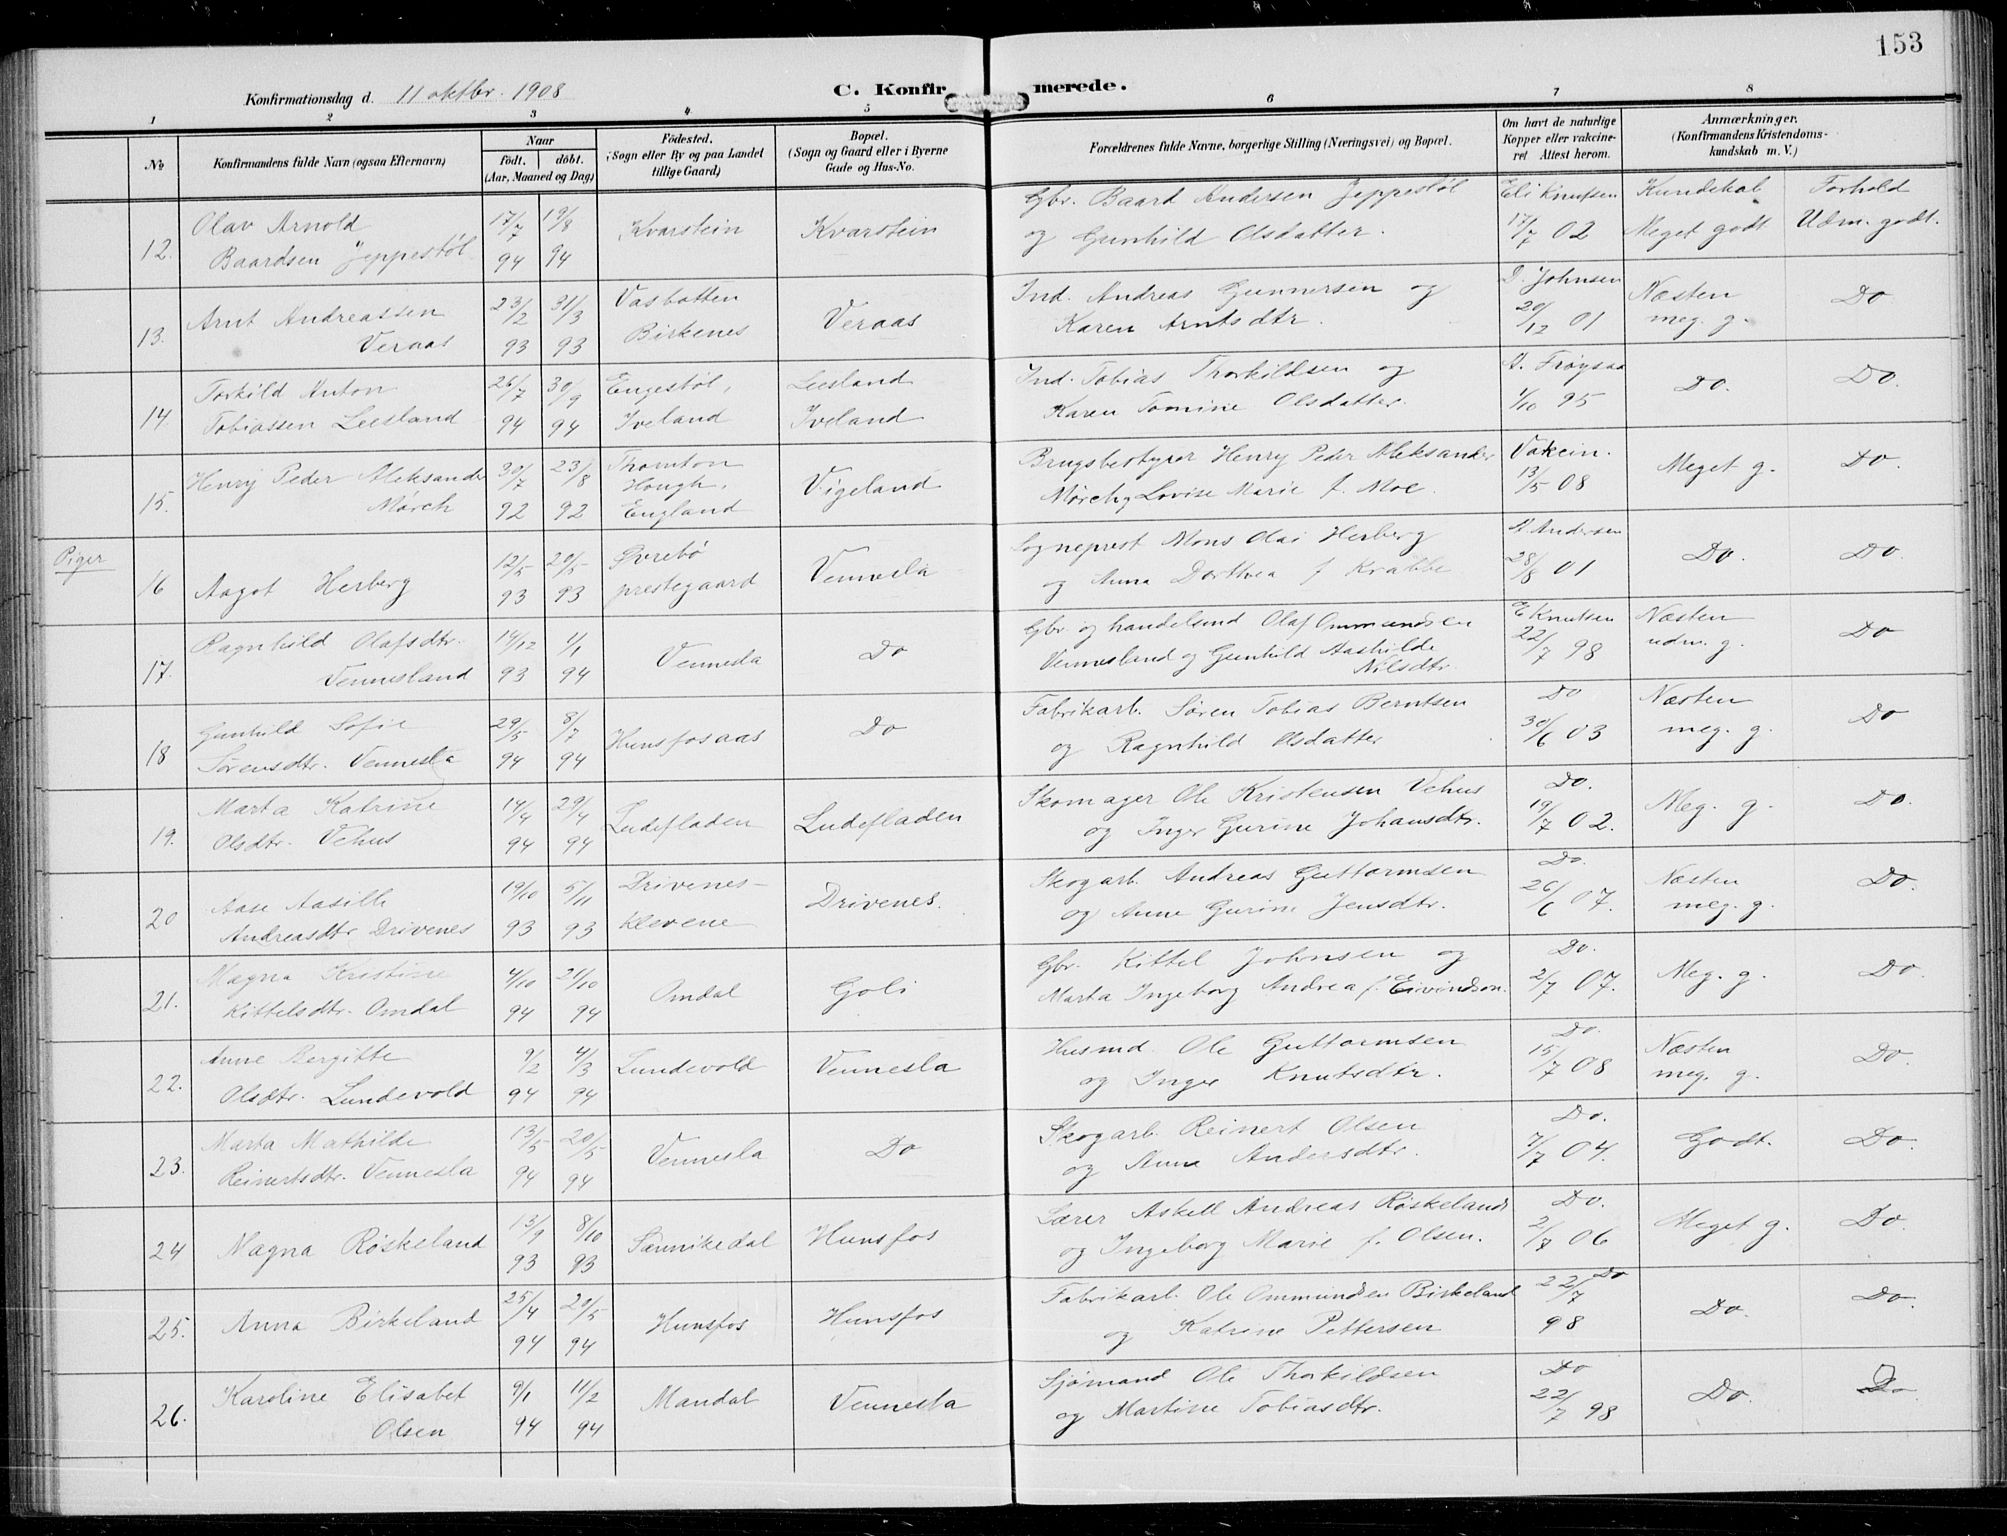 153
Konfirmationsdag d. 11 oktbr. 1908 C. Konfirmerede.
1 2 3 4 5 6 7 8
No
Konfirmandens fulde Navn (ogsaa Efternavn)
Naar
födt. döbt.
(Aar, Maaned og Dag)
Födested.
(Sogn eller By og paa Landet
tillige Gaard)
Bopæl.
(Sogn og Gaard eller i Byerne
Gade og Hus-No.
Forældrenes fulde Navne, borgerlige Stilling (Næringsvei) og Bopæl.
Om havt de naturlige
Kopper eller vakcine-
ret Attest herom.
Anmærkninger.
(Konfirmandens Kristendoms-
kundskab m. V.)
Olav Arnold 17/7 19/8 Kvarstein Kvarstein Gbr. Baard Andersen Jeppestøl Eli Knutsen Kundskab Forhold
12. Baardsen Jeppestøl 94 94 og Gunhild Olsdatter. 17/7 02 Meget godt Udm. godt.
Arnt Andreassen 23/2 31/3 Vasbotten Veraas Ind. Andreas Gunnersen og Johnsen Næsten Do
13. Veraas 93 93 Birkenes Karen Arntsdtr. 20/12 01 meg. g.
Torkild Anton 26/7 30/9 Engestøl, Leesland Ind. Tobias Thorkildsen og Frøysaa Do. Do.
14. Tobiassen Leesland 94 94 Iveland Iveland Karen Tomine Olsdatter. 1/10 95
Henry Peder Aleksander 30/7 23/8 Thornton Vigeland Brugsbestyrer Henry Peder Aleksander Vakcin. Meget g. Do.
15. Mørch 92 92 Hough, England Mørch og Lovise Marie f. Moe. 13/5 08
Piger
16 Aagot Herberg 12/5 20/5 Øvrebø Vennesla Sogneprest Mons Olai Herberg A Andersen Do. Do
93 93 prestegaard og Anna Dorthea f Krabbe 28/8 01
Ragnhild Olafsdtr. 14/12 1/1 Vennesla Do Gbr. og handelsmd Olaf Ommundsen E Knutsen Næsten Do
17. Vennesland 93 94 Vennesland og Gunhild Aashilde Nilsdtr. 22/7 98 udm. g.
Gunhild Sofie 29/5 8/7 Hunsfosaas Do Fabrikarb. Søren Tobias Berntsen Do Næsten Do
18 Sørensdtr. Vennesla 94 94 og Ragnhild Olsdatter 30/6 03 meg. g.
Marta Katrine 14/4 29/4 Ludefladen Ludefladen Skomager Ole Kristensen Vehus Do. Meg. g. Do.
19. Olsdtr. Vehus 94 94 og Inger Gurine Johansdtr. 19/7 02.
Aase Aasille 19/10 5/11 Drivenes- Drivenes. Skogarb. Andreas Guttormsen Do. Næsten Do.
20 Andreasdtr Drivenes 93 93 klevene og Anne Gurine Jensdtr. 26/6 07. meg. g.
Magna Kristine 4/10 21/10 Omdal Goli Gbr. Kittel Johnsen og Do. Meg. g. Do.
21. Kittelsdtr. Omdal 94 94 Marta Ingeborg Andrea f. Eivindson. 2/7 07.
Anne Bergitte 9/2 4/3 Lundevold Vennesla Husmd. Ole Guttormsen Do. Næsten Do.
22. Olsdtr. Lundevold 94 94 og Inger Knutsdtr. 15/7 08 meg. g.
Marta Mathilde 13/5 20/5 Vennesla Do Skogarb. Reinert Olsen Do. Godt. Do.
23. Reinertsdtr. Vennesla 94 94 og Anna Andersdtr. 7/7 04.
24 Magna Røskeland 13/9 8/10 Sannikedal Hunsfos Lærer Askell Andreas Røskeland Do. Meget g. Do.
93 93 og Ingeborg Marie f. Olsen. 2/7 06
25. Anna Birkeland 25/4 20/5 Hunsfos Hunsfos Fabrikarb. Ole Ommundsen Birkeland 22/7 Do Do. Do.
94 94 og Katrine Pettersen 98
Karoline Elisabet 9/1 11/2 Mandal Vennesla Sjømand Ole Thorkildsen Do Do. Do.
26. Olsen 94 94 og Martine Tobiasdtr. 22/7 98